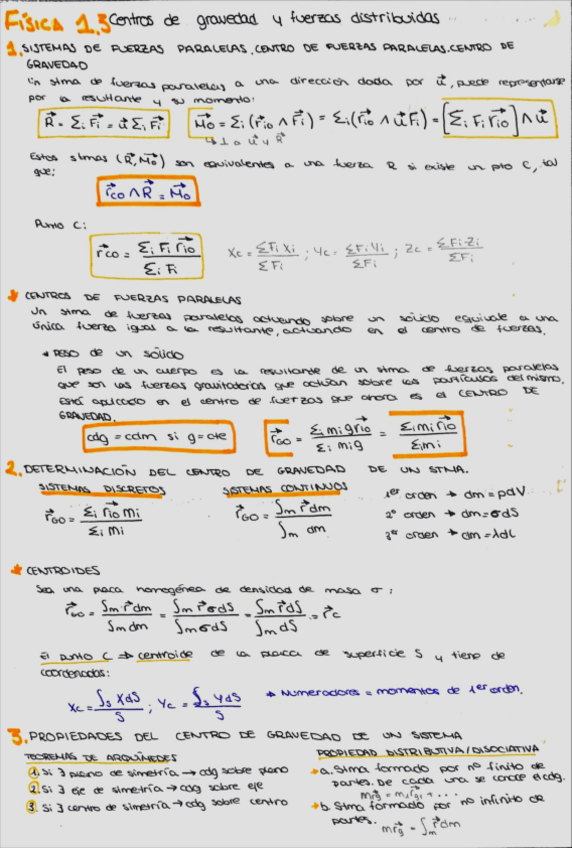 FÍSICA 1.3 Centros de gravedad y fuerzas distribuidas
1. SISTEMAS DE FUERZAS PARALELAS, CENTRO DE FUERZAS PARALELAS. CENTRO DE
GRAVEDAD
Un stma de fuerzas paralelas a una dirección dada por u⃗, puede representarse
por la resultante y su momento:
R⃗ = Σi F⃗i = u⃗ Σi Fi    M⃗o = Σi (r⃗io ∧ F⃗i) = Σi (r⃗io ∧ u⃗ Fi) = [Σi Fi r⃗io] ∧ u⃗
↳ ⊥ a u⃗ y R⃗
Estos stmas (R⃗, M⃗o) son equivalentes a una fuerza R si existe un pto C, tal
que:
r⃗co ∧ R⃗ = M⃗o
Punto C:
r⃗co = Σi Fi r⃗io / Σi Fi    Xc = ΣFi Xi / ΣFi ; Yc = ΣFi Yi / ΣFi ; Zc = ΣFi·Zi / ΣFi
CENTROS DE FUERZAS PARALELAS
Un stma de fuerzas paralelas actuando sobre un sólido equivale a una
única fuerza igual a la resultante, actuando en el centro de fuerzas.
PESO de un sólido
El peso de un cuerpo es la resultante de un stma de fuerzas paralelas
que son las fuerzas gravitatorias que actúan sobre las partículas del mismo.
Está aplicado en el centro de fuerzas que ahora es el CENTRO DE
GRAVEDAD.
cdg = cdm si g = cte    r⃗GO = Σi mi g r⃗io / Σi mi g = Σi mi r⃗io / Σi mi
2. DETERMINACIÓN DEL CENTRO DE GRAVEDAD DE UN STMA.
SISTEMAS DISCRETOS    SISTEMAS CONTINUOS    1er orden → dm = ρdV
r⃗GO = Σi r⃗io mi / Σi mi    r⃗GO = ∫m r⃗dm / ∫m dm    2º orden → dm = σdS
3er orden → dm = λdL
CENTROIDES
Sea una placa homogénea de densidad de masa σ:
r⃗GO = ∫m r⃗dm / ∫m dm = ∫m r⃗σdS / ∫m σdS = ∫m r⃗dS / ∫m dS = r⃗c
El punto C ⇒ centroide de la placa de superficie S y tiene de
coordenadas:
Xc = ∫s XdS / S ; Yc = ∫s YdS / S    * Numeradores = momentos de 1er orden.
3. PROPIEDADES DEL CENTRO DE GRAVEDAD DE UN SISTEMA
TEOREMAS DE ARQUÍMEDES    PROPIEDAD DISTRIBUTIVA/DISOCIATIVA
1. Si ∃ plano de simetría → cdg sobre plano
2. Si ∃ eje de simetría → cdg sobre eje
3. Si ∃ centro de simetría → cdg sobre centro
a. Stma formado por nº finito de
partes. De cada una se conoce el cdg.
m r⃗g = m1 r⃗g1 + ...
b. Stma formado por nº infinito de
partes.
m r⃗g = ∫m r⃗dm